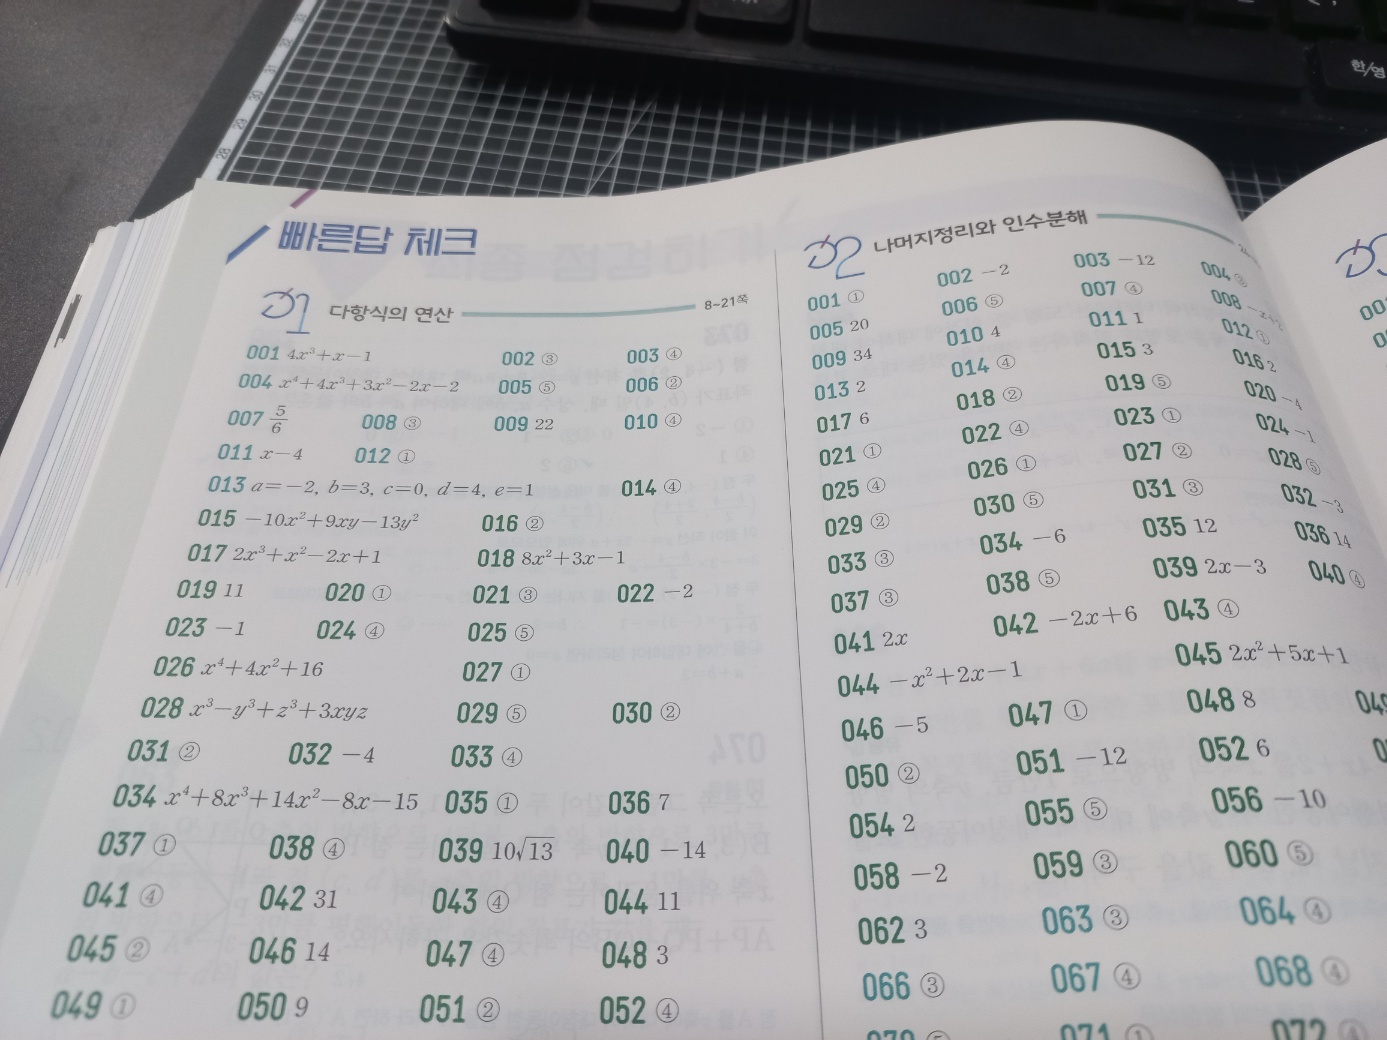 한/영
31
30
29
28
빠른답 체크
01 다항식의 연산 8~21쪽
001 4x³+x-1 002 ③ 003 ④
004 x⁴+4x³+3x²-2x-2 005 ⑤ 006 ②
007 5/6 008 ③ 009 22 010 ④
011 x-4 012 ①
013 a=-2, b=3, c=0, d=4, e=1 014 ④
015 -10x²+9xy-13y² 016 ②
017 2x³+x²-2x+1 018 8x²+3x-1
019 11 020 ① 021 ③ 022 -2
023 -1 024 ④ 025 ⑤
026 x⁴+4x²+16 027 ①
028 x³-y³+z³+3xyz 029 ⑤ 030 ②
031 ② 032 -4 033 ④
034 x⁴+8x³+14x²-8x-15 035 ① 036 7
037 ① 038 ④ 039 10√13 040 -14
041 ④ 042 31 043 ④ 044 11
045 ② 046 14 047 ④ 048 3
049 ① 050 9 051 ② 052 ④
02 나머지정리와 인수분해
001 ① 002 -2 003 -12 004
005 20 006 ⑤ 007 ④ 008
009 34 010 4 011 1 012 ①
013 2 014 ④ 015 3 016 2
017 6 018 ② 019 ⑤ 020 -4
021 ① 022 ④ 023 ① 024 -1
025 ④ 026 ① 027 ② 028 ⑤
029 ② 030 ⑤ 031 ③ 032 -3
033 ③ 034 -6 035 12 036 14
037 ③ 038 ⑤ 039 2x-3 040 ④
041 2x 042 -2x+6 043 ④
044 -x²+2x-1 045 2x²+5x+1
046 -5 047 ① 048 8
050 ② 051 -12 052 6
054 2 055 ⑤ 056 -10
058 -2 059 ③ 060 ⑤
062 3 063 ③ 064 ④
066 ③ 067 ④ 068 ④
070 ⑤ 071 ① 072 ④
03